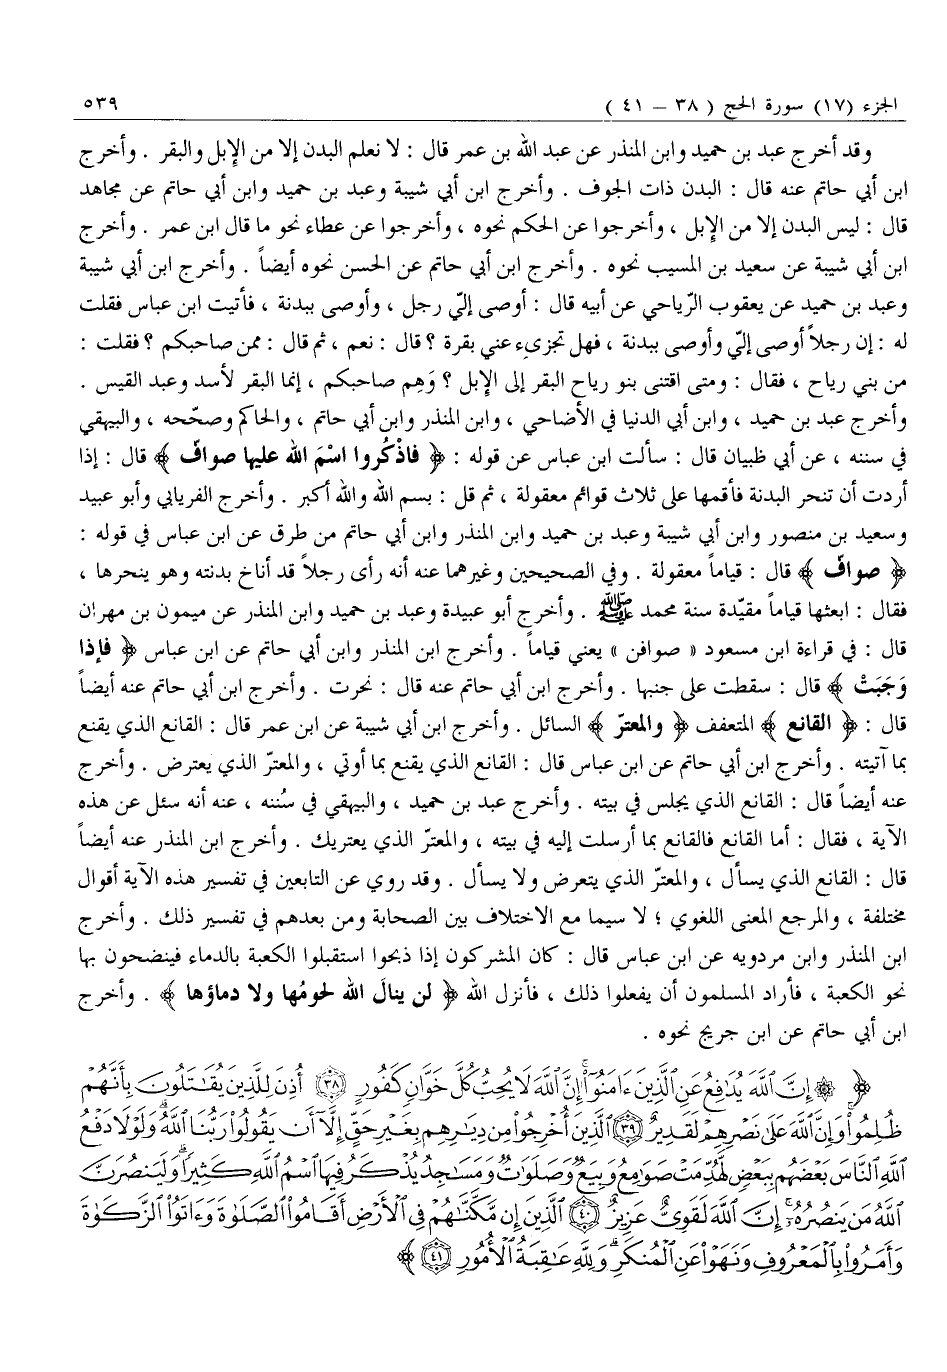 الجزء (١٧) سورة الحج ( ٣٨ – ٤١ ) ٥٣٩
وقد أخرج عبد بن حميد وابن المنذر عن عبد الله بن عمر قال : لا نعلم البدن إلا من الإِبل والبقر . وأخرج
ابن أبي حاتم عنه قال : البدن ذات الجوف . وأخرج ابن أبي شيبة وعبد بن حميد وابن أبي حاتم عن مجاهد
قال : ليس البدن إلا من الإِبل ، وأخرجوا عن الحكم نحوه ، وأخرجوا عن عطاء نحو ما قال ابن عمر . وأخرج
ابن أبي شيبة عن سعيد بن المسيب نحوه . وأخرج ابن أبي حاتم عن الحسن نحوه أيضاً . وأخرج ابن أبي شيبة
وعبد بن حميد عن يعقوب الرّياحي عن أبيه قال : أوصى إليّ رجل ، وأوصى ببدنة ، فأتيت ابن عباس فقلت
له : إن رجلاً أوصى إليّ وأوصى ببدنة ، فهل تجزىء عني بقرة ؟ قال : نعم ، ثم قال : ممن صاحبكم ؟ فقلت :
من بني رياح ، فقال : ومتى اقتنى بنو رياح البقر إلى الإبل ؟ وَهِم صاحبكم ، إنما البقر لأسد وعبد القيس .
وأخرج عبد بن حميد ، وابن أبي الدنيا في الأضاحي ، وابن المنذر وابن أبي حاتم ، والحاكم وصحّحه ، والبيهقي
في سننه ، عن أبي ظبيان قال : سألت ابن عباس عن قوله : ﴿ فاذْكُروا اسْمَ الله عليها صوافّ ﴾ قال : إذا
أردت أن تنحر البدنة فأقمها على ثلاث قوائم معقولة ، ثم قل : بسم الله والله أكبر . وأخرج الفريابي وأبو عبيد
وسعيد بن منصور وابن أبي شيبة وعبد بن حميد وابن المنذر وابن أبي حاتم من طرق عن ابن عباس في قوله :
﴿ صوافّ ﴾ قال : قياماً معقولة . وفي الصحيحين وغيرهما عنه أنه رأى رجلاً قد أناخ بدنته وهو ينحرها ،
فقال : ابعثها قياماً مقيّدة سنة محمد ﷺ . وأخرج أبو عبيدة وعبد بن حميد وابن المنذر عن ميمون بن مهران
قال : في قراءة ابن مسعود « صوافن » يعني قياماً . وأخرج ابن المنذر وابن أبي حاتم عن ابن عباس ﴿ فإذا
وَجَبَتْ ﴾ قال : سقطت على جنبها . وأخرج ابن أبي حاتم عنه قال : نحرت . وأخرج ابن أبي حاتم عنه أيضاً
قال : ﴿ القانع ﴾ المتعفف ﴿ والمعترّ ﴾ السائل . وأخرج ابن أبي شيبة عن ابن عمر قال : القانع الذي يقنع
بما آتيته . وأخرج ابن أبي حاتم عن ابن عباس قال : القانع الذي يقنع بما أوتي ، والمعترّ الذي يعترض . وأخرج
عنه أيضاً قال : القانع الذي يجلس في بيته . وأخرج عبد بن حميد ، والبيهقي في سُننه ، عنه أنه سئل عن هذه
الآية ، فقال : أما القانع فالقانع بما أرسلت إليه في بيته ، والمعترّ الذي يعتريك . وأخرج ابن المنذر عنه أيضاً
قال : القانع الذي يسأل ، والمعترّ الذي يتعرض ولا يسأل . وقد روي عن التابعين في تفسير هذه الآية أقوال
مختلفة ، والمرجع المعنى اللغوي ؛ لا سيما مع الاختلاف بين الصحابة ومن بعدهم في تفسير ذلك . وأخرج
ابن المنذر وابن مردويه عن ابن عباس قال : كان المشركون إذا ذبحوا استقبلوا الكعبة بالدماء فينضحون بها
نحو الكعبة ، فأراد المسلمون أن يفعلوا ذلك ، فأنزل الله ﴿ لن ينالَ الله لحومُها ولا دماؤها ﴾ . وأخرج
ابن أبي حاتم عن ابن جريج نحوه .
﴿ ۞ إِنَّ ٱللَّهَ يُدَٰفِعُ عَنِ ٱلَّذِينَ ءَامَنُوٓا۟ إِنَّ ٱللَّهَ لَا يُحِبُّ كُلَّ خَوَّانٍ كَفُورٍ ٣٨ أُذِنَ لِلَّذِينَ يُقَٰتَلُونَ بِأَنَّهُمْ
ظُلِمُوا۟ وَإِنَّ ٱللَّهَ عَلَىٰ نَصْرِهِمْ لَقَدِيرٌ ٣٩ ٱلَّذِينَ أُخْرِجُوا۟ مِن دِيَٰرِهِم بِغَيْرِ حَقٍّ إِلَّآ أَن يَقُولُوا۟ رَبُّنَا ٱللَّهُ وَلَوْلَا دَفْعُ
ٱللَّهِ ٱلنَّاسَ بَعْضَهُم بِبَعْضٍ لَّهُدِّمَتْ صَوَٰمِعُ وَبِيَعٌ وَصَلَوَٰتٌ وَمَسَٰجِدُ يُذْكَرُ فِيهَا ٱسْمُ ٱللَّهِ كَثِيرًا وَلَيَنصُرَنَّ
ٱللَّهُ مَن يَنصُرُهُۥٓ إِنَّ ٱللَّهَ لَقَوِىٌّ عَزِيزٌ ٤٠ ٱلَّذِينَ إِن مَّكَّنَّٰهُمْ فِى ٱلْأَرْضِ أَقَامُوا۟ ٱلصَّلَوٰةَ وَءَاتَوُا۟ ٱلزَّكَوٰةَ
وَأَمَرُوا۟ بِٱلْمَعْرُوفِ وَنَهَوْا۟ عَنِ ٱلْمُنكَرِ وَلِلَّهِ عَٰقِبَةُ ٱلْأُمُورِ ٤١ ﴾